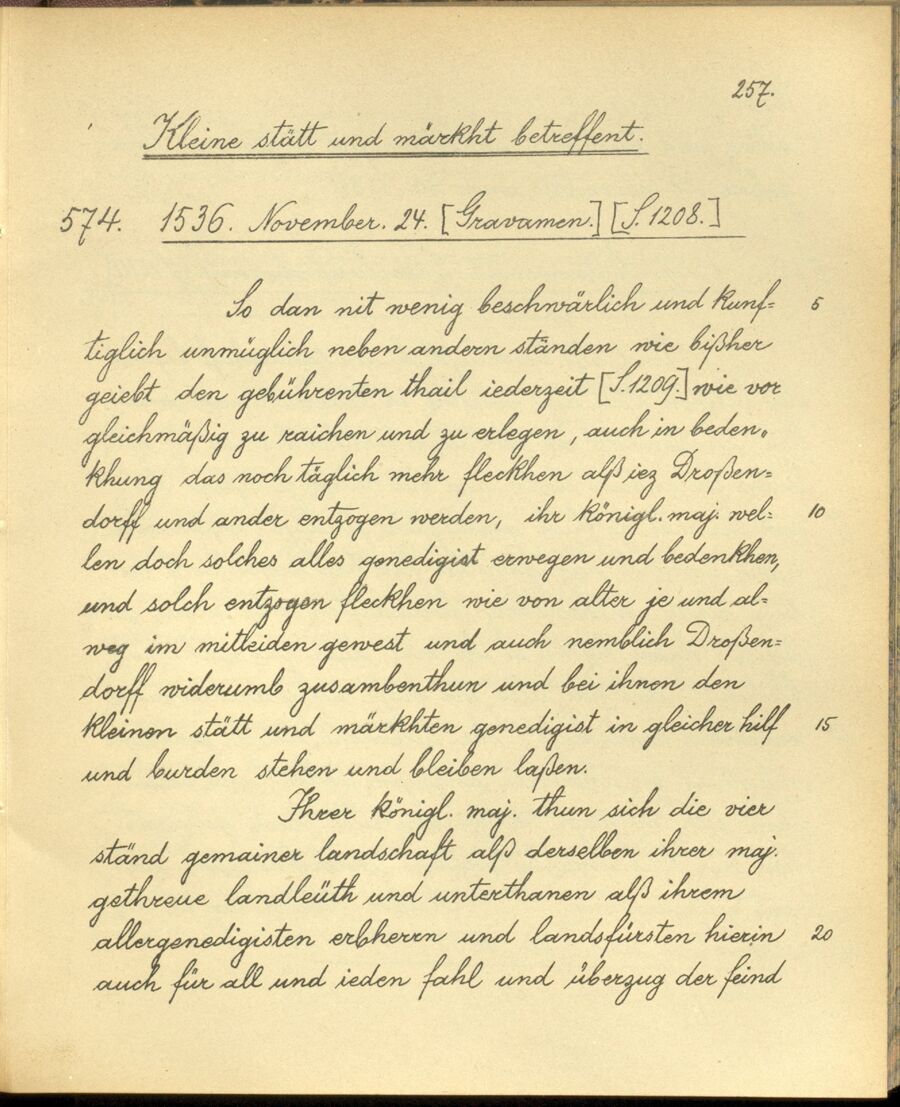 257.
Kleine stätt und märkht betreffent.
574. 1536. November. 24. [Gravamen.] [S. 1208.]
So dan nit wenig beschwärlich und kunf= 5
tiglich unmüglich neben andern ständen wie bißher
geiebt den gebührenten thail iederzeit [S. 1209.] wie vor
gleichmäßig zu raichen und zu erlegen, auch in beden=
khung das noch täglich mehr fleckhen alß iez Droßen=
dorff und ander entzogen werden, ihr königl. maj. wel= 10
len doch solches alles genedigist erwegen und bedenkhen,
und solch entzogen fleckhen wie von alter je und al=
weg im mitleiden gewest und auch nemblich Droßen=
dorff widerumb zusambenthun und bei ihnen den
kleinen stätt und märkhten genedigist in gleicher hilf 15
und burden stehen und bleiben laßen.
Ihrer königl. maj. thun sich die vier
ständ gemainer landschaft alß derselben ihrer maj.
gethreue landleüth und unterthanen alß ihrem
allergenedigisten erbherrn und landsfürsten hierin 20
auch für all und ieden fahl und überzug der feind